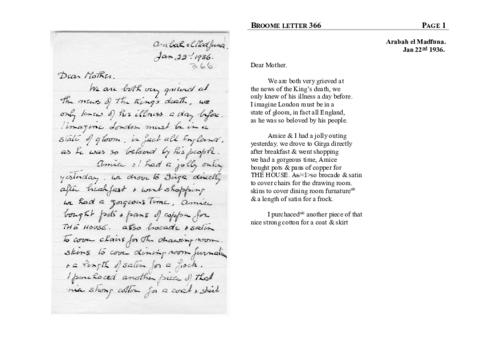 Arabah el Madfuna.
Jan. 22nd 1936.
366
Dear Mother.
We are both very grieved at
the news of the King's death, we
only knew of his illness a day before.
I imagine London must be in a
state of gloom, in fact all England,
as he was so beloved by his people.
Amice & I had a jolly outing
yesterday. we drove to Girga directly
after breakfast & went shopping
we had a gorgeous time, Amice
bought pots & pans of copper for
THE HOUSE. also brocade & satin
to cover chairs for the drawing room
skins to cover dining room furnature
& a length of satin for a frock.
I purchaced another piece of that
nice strong cotton for a coat & skirt
BROOME LETTER 366 PAGE 1
Arabah el Madfuna.
Jan 22nd 1936.
Dear Mother.
We are both very grieved at
the news of the King's death, we
only knew of his illness a day before.
I imagine London must be in a
state of gloom, in fact all England,
as he was so beloved by his people.
Amice & I had a jolly outing
yesterday. we drove to Girga directly
after breakfast & went shopping
we had a gorgeous time, Amice
bought pots & pans of copper for
THE HOUSE. brocade & satin
to cover chairs for the drawing room.
skins to cover dining room furnature
& a length of satin for a frock.
I purchaced another piece of that
nice strong cotton for a coat & skirt